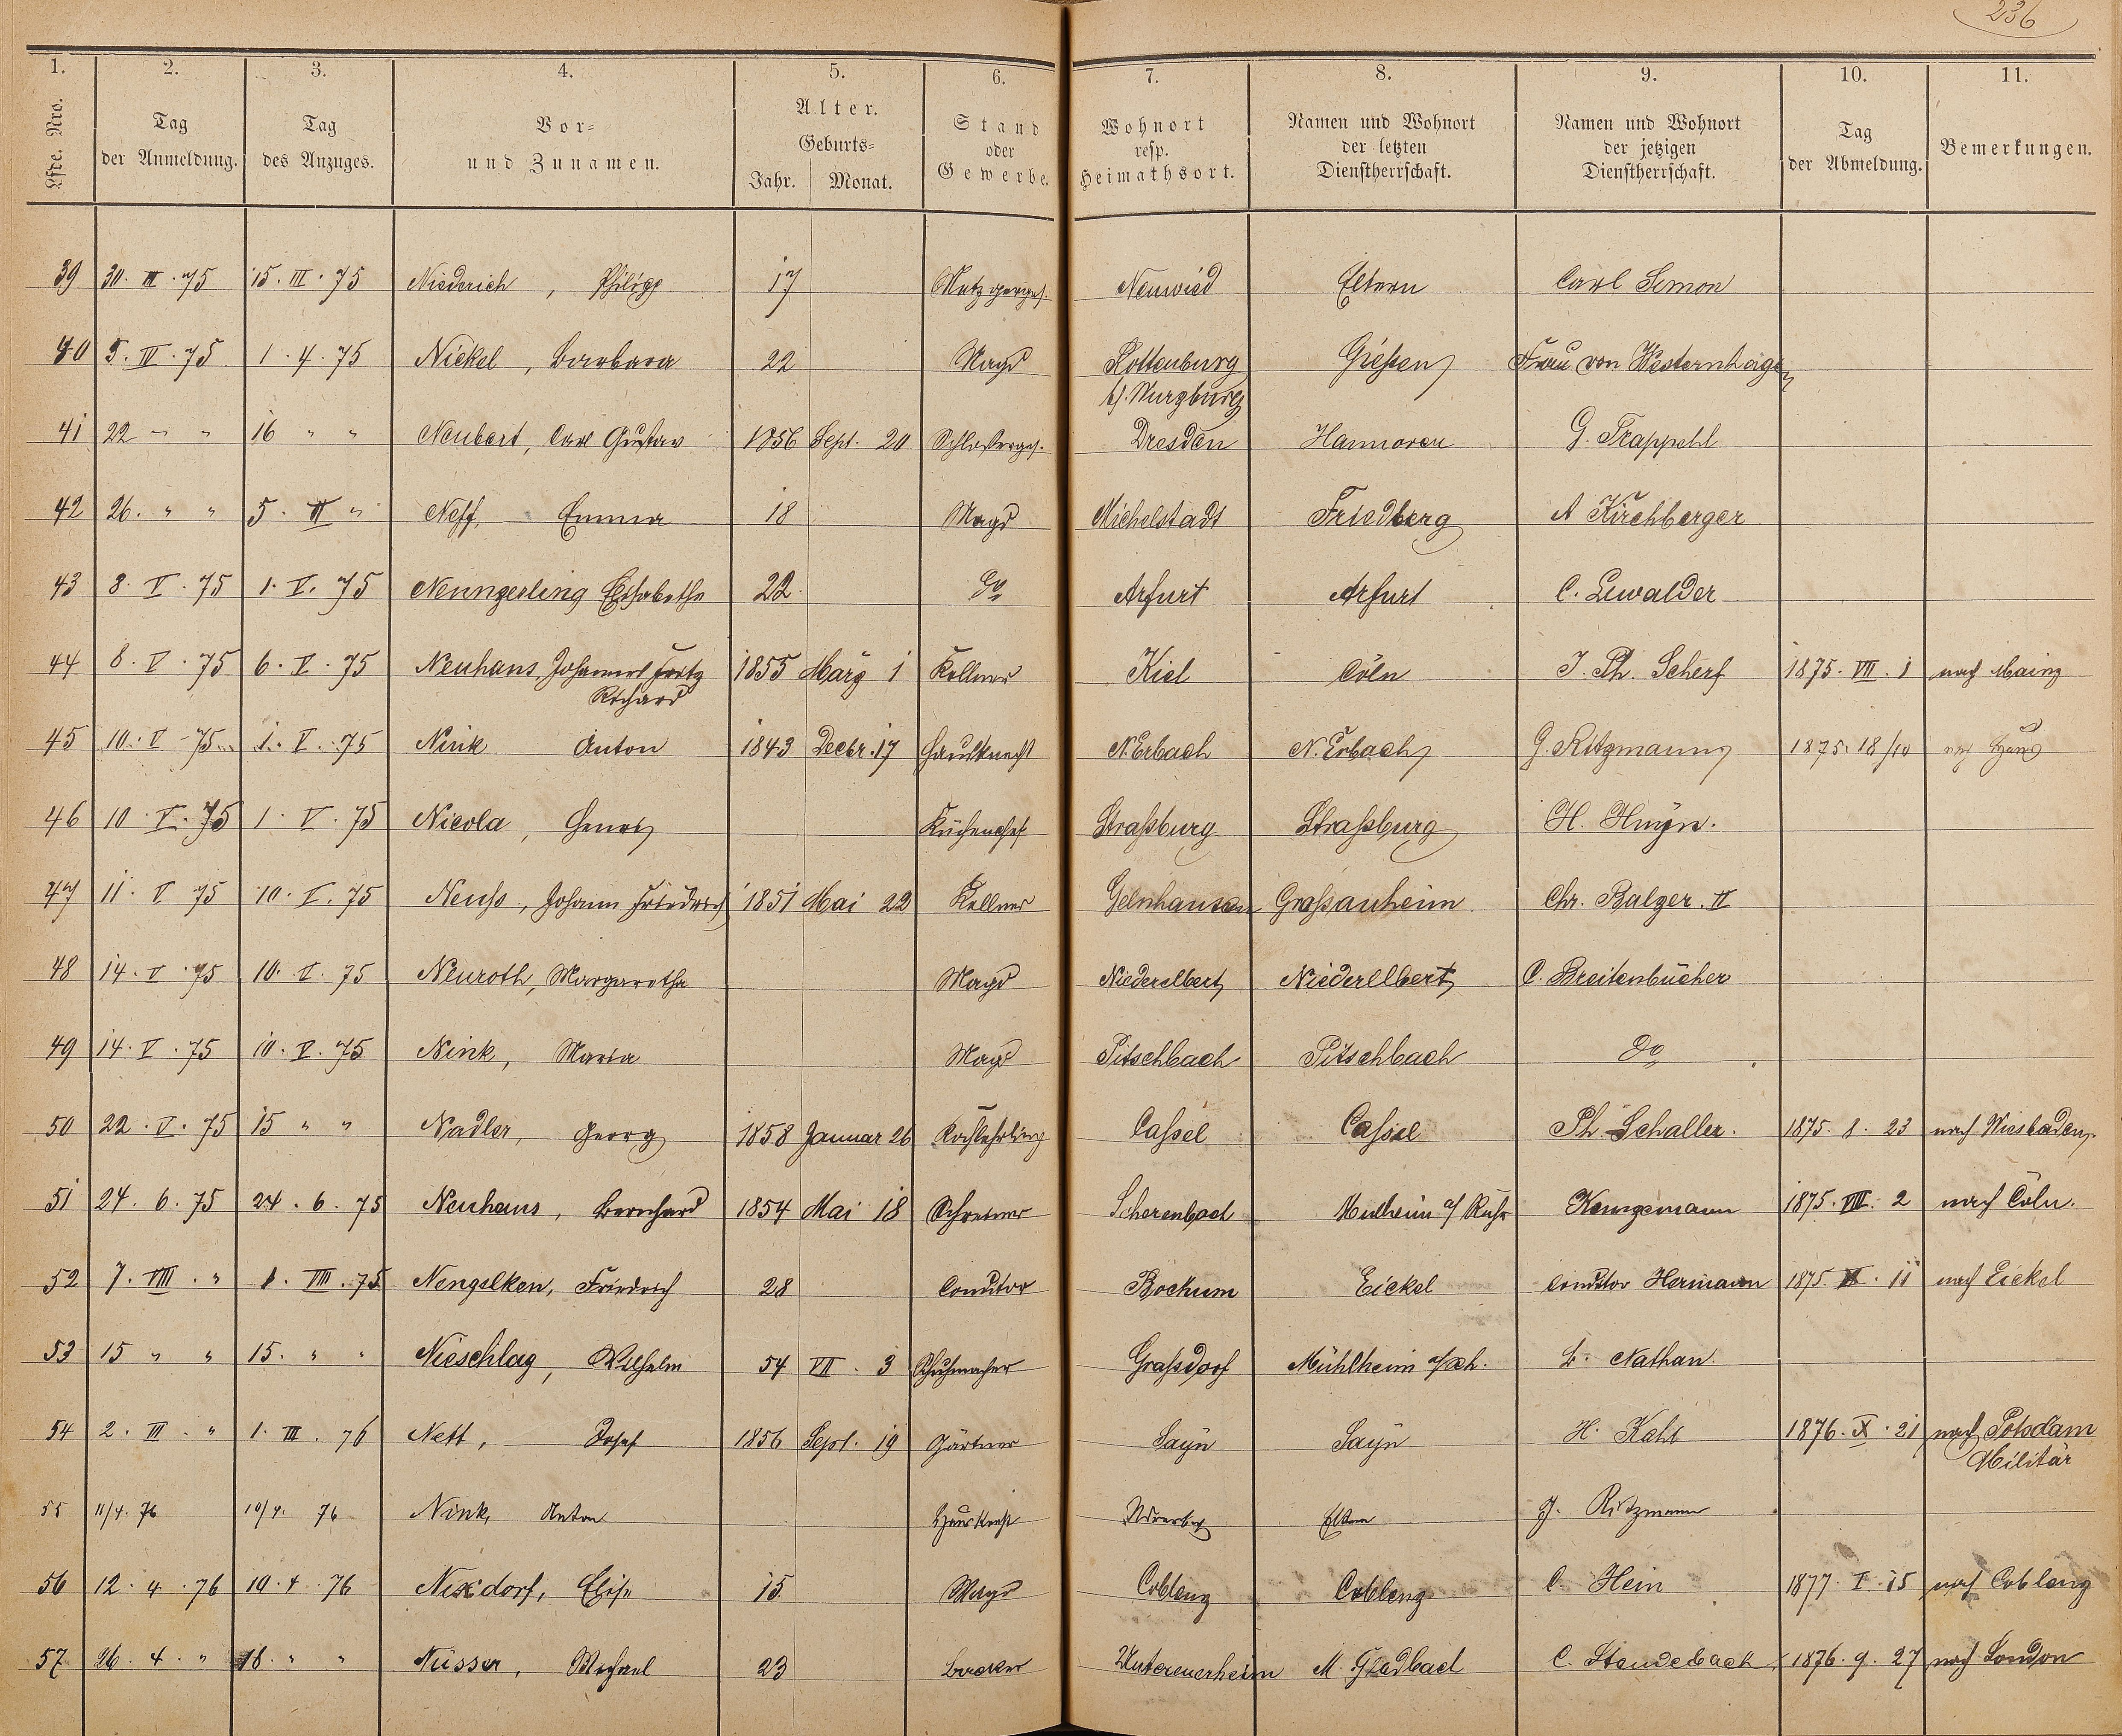 236
1. 2. 3. 4. 5. 6. 7. 8. 9. 10. 11.
Lfde. Nro. | Tag der Anmeldung. | Tag des Anzuges. | Vor- und Zunamen. | Alter. Geburts- Jahr. Monat. | Stand oder Gewerbe. | Wohnort resp. Heimathsort. | Namen und Wohnort der letzten Dienstherrschaft. | Namen und Wohnort der jetzigen Dienstherrschaft. | Tag der Abmeldung. | Bemerkungen.
39 30. III. 75 15. III. 75 Niederich, Philipp 17 Metzgerges. Neuwied Eltern Carl Simon
40 5. IV. 75 1. 4. 75 Nickel, Barbara 22 Magd Rottenburg Gießen Frau von Westernhagen
b/. Wurzburg
41 22 " " 16 " " Neubert, Carl Gustav 1856 Sept. 20 Schlosserges. Dresden Hannover G. Trappehl
42 26. " " 5. II " Neff, Emma 18 Magd Michelstadt Friedberg A Kirchberger
43 8. V. 75 1. V. 75 Neungerling Elisabethe 22. do Arfurt Arfurt C. Lewalder
44 8. V. 75 6. V. 75 Neuhaus, Johannes Fritz 1855 März 1 Kellner Kiel Cöln J. Ph. Scherf 1875. VII. 1 nach Mainz
Richard
45 10. V 75 1. V. 75 Nink Anton 1843 Decbr. 17 Hausknecht N. Erbach N. Erbach G. Ritzmann 1875. 18/10 nach Haus
46 10. V. 75 1. V. 75 Nicola, Henry Küchenchef Straßburg Straßburg H. Huyn.
47 11. V 75 10. V. 75 Neuss, Johann Friedrich 1851 Mai 22 Kellner Gelnhausen Großauheim Chr. Balzer II
48 14. V. 75 10. V. 75 Neuroth, Margaretha Magd Niederelbert Niederelbert C. Breitenbücher
49 14. V. 75 10. V. 75 Nink, Maria Magd Pitschbach Pitschbach do
50 22. V. 75 15 " " Nadler, Georg 1858 Januar 26 Kochlehrling Cassel Cassel Ph Schaller. 1875. 8. 23 nach Wiesbaden.
51 24. 6. 75 24. 6. 75 Neuhaus, Bernhard 1854 Mai 18 Schreiner Scherenbach Mulheim a/ Ruhr Kemgemann 1875. VIII. 2 nach Cöln.
52 7. VIII. " 1. VIII. 75 Nengelken, Friedrich 28 Conditor Bochum Eickel Conditor Hermann 1875. XI. 11 nach Eickel
53 15 " " 15. " " Nieschlag, Wilhelm 54 VII. 3 Schuhmacher Grassdorf Mühlheim a/Rh. L. Nathan
54 2. III. " 1. III. 76 Nett, Josef 1856 Sept. 19 Gärtner Sayn Sayn H. Kaht 1876. X. 21 nach Potsdam
Militär
55 11/4. 76 10/4. 76 Nink, Anton Hausknecht Eltern G. Ritzmann
56 12. 4. 76 10. 4. 76 Nixdorf, Elise 15 Magd Coblenz Coblenz C. Hein 1877. I. 15 nach Coblenz
57 26. 4. " 18. " " Nüsser, Michael 23 Backer Untereuerheim M. Gladbach C. Staudebach 1876. 9. 27 nach London